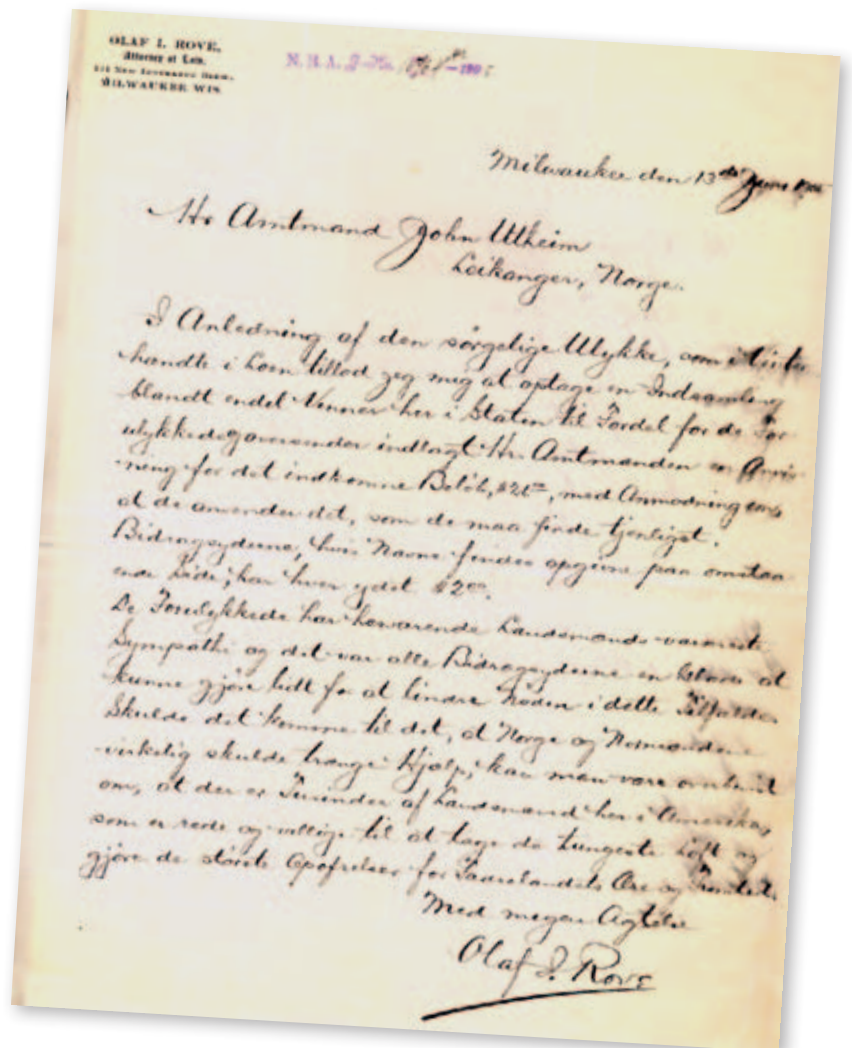 OLAF I. ROVE,
Attorney at Law.
MILWAUKEE WIS.
N.B.A.
Milwaukee den 13de Juni
Hr Amtmand John Utheim
Leikanger, Norge.
I Anledning af den sørgelige Ulykke, som
hændte i Loen tillod jeg mig at optage en Indsamling
blandt endel Venner her i Staten til Fordel for de For-
ulykkede indlagt Hr. Amtmanden en Anvis-
ning for det indkomne Beløb, med Anmodning om,
at de anvender det, som de maa finde tjenligst.
Bidragsyderne, hvis Navne findes opgivne paa omstaa-
ende Side, har hver ydet $2.00.
De Forulykkede har herværende Landsmænds varmeste
Sympathi og det var alle Bidragsyderne en at
kunne gjøre lidt for at lindre Nøden i dette Tilfælde.
Skulde det komme til det, at Norge og Nordmænd
virkelig skulde trænge Hjælp, kan man være
om, at der er Tusinder af Landsmænd her i Amerika,
som er rede og villige til at tage de tungeste Løft og
gjøre de største Opofrelser for Fædrelandets Ære og
Med megen Agtelse
Olaf I. Rove